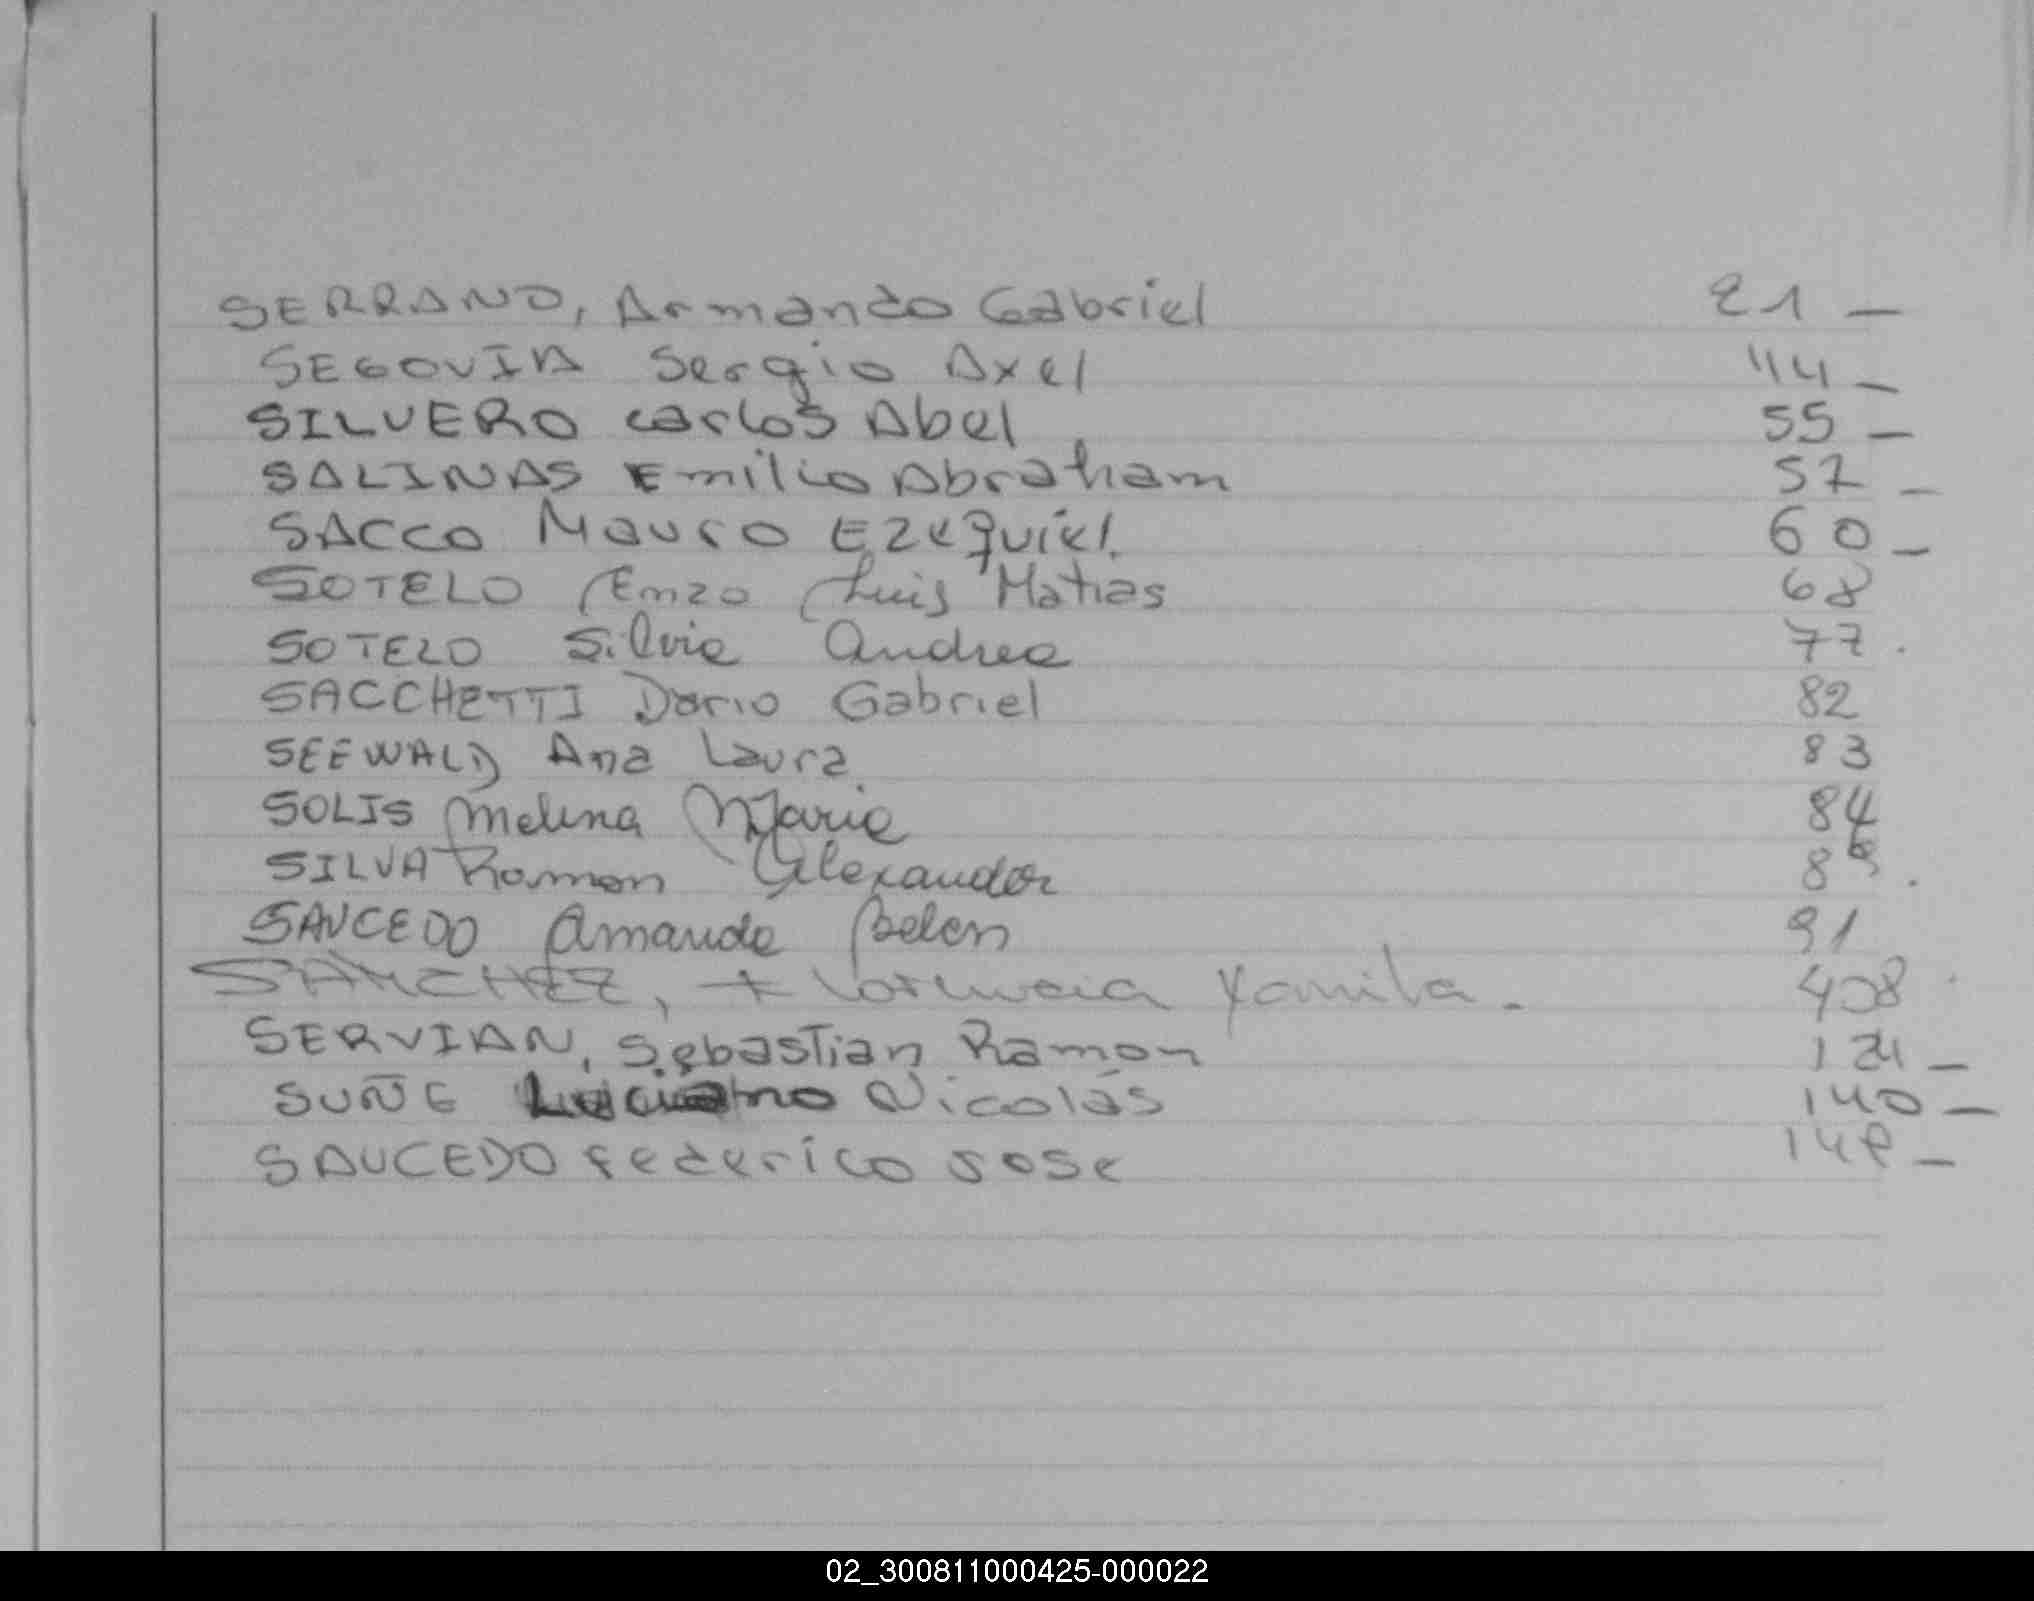 SERRANO, Armando Gabriel 21 —
SEGOVIA Sergio Axel 44 —
SILVERO Carlos Abel 55 —
SALINAS Emilio Abraham 57 —
SACCO Mauro Ezequiel. 60 —
SOTELO Enzo Luis Matias 68
SOTELO Silvia Andrea 77.
SACCHETTI Dario Gabriel 82
SEEWALD Ana Laura. 83
SOLIS Melina Maria 84
SILVA Ramon Alexander
SAUCEDO Amanda Belen 91
SANCHEZ, Yamila.
SERVIAN, Sebastian Ramon 121 —
SUÑE Luciano Nicolás 140 —
SAUCEDO Federico Jose
02_300811000425-000022